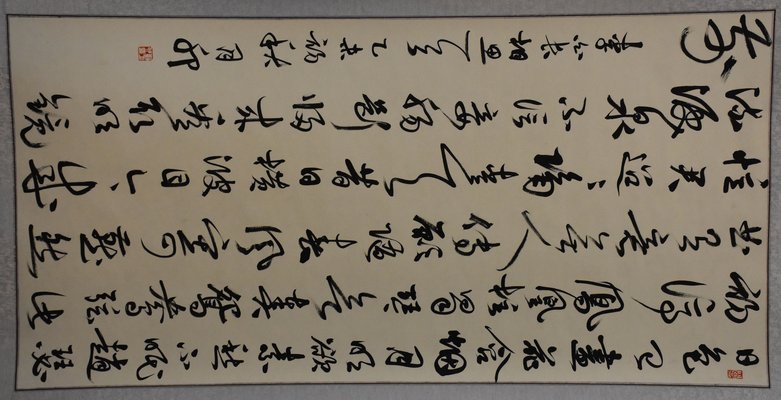 日色已盡花含烟月明欲素愁不眠趙瑟
初停鳳凰柱蜀琴欲奏鴛鴦弦此
曲有意無人傳願隨春風寄燕然
憶君迢迢隔青天昔日橫波目今
流淚泉不信妾腸斷歸來看取明鏡
前 李白長相思